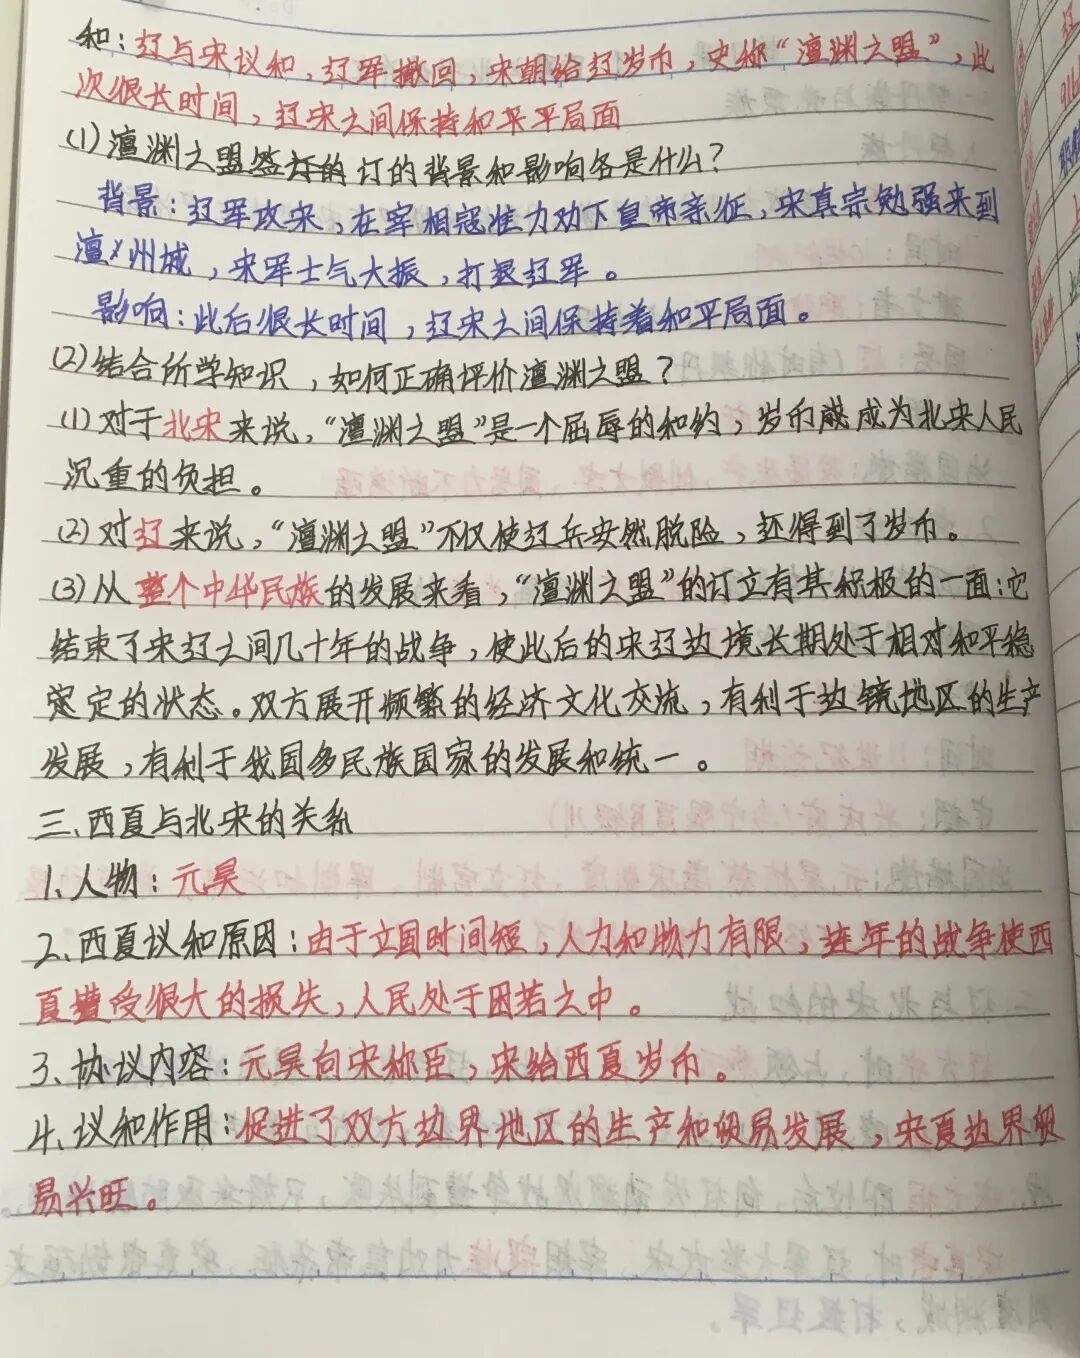 和：辽与宋议和，辽军撤回，宋朝给辽岁币，史称“澶渊之盟”，此
次很长时间，辽宋之间保持和平平局面
(1)澶渊之盟签订的订的背景和影响各是什么？
背景：辽军攻宋，在宰相寇准力劝下皇帝亲征，宋真宗勉强来到
澶州城，宋军士气大振，打退辽军。
影响：此后很长时间，辽宋之间保持着和平局面。
(2)结合所学知识，如何正确评价澶渊之盟？
(1)对于北宋来说，“澶渊之盟”是一个屈辱的和约，岁币成为北宋人民
沉重的负担。
(2)对辽来说，“澶渊之盟”不仅使辽兵安然脱险，还得到了岁币。
(3)从整个中华民族的发展来看，“澶渊之盟”的订立有其积极的一面：它
结束了宋辽之间几十年的战争，使此后的宋辽边境长期处于相对和平稳
定的状态。双方展开频繁的经济文化交流，有利于边镜地区的生产
发展，有利于我国多民族国家的发展和统一。
三、西夏与北宋的关系
1、人物：元昊
2、西夏议和原因：由于立国时间短，人力和物力有限，连年的战争使西
夏遭受很大的损失，人民处于困苦之中。
3、协议内容：元昊向宋称臣，宋给西夏岁币。
4、议和作用：促进了双方边界地区的生产和贸易发展，宋夏边界贸
易兴旺。